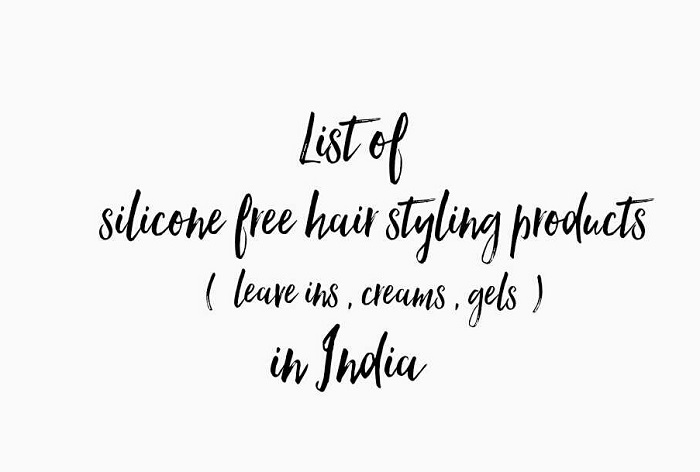 List of
silicone free hair styling products
( leave ins , creams , gels )
in India